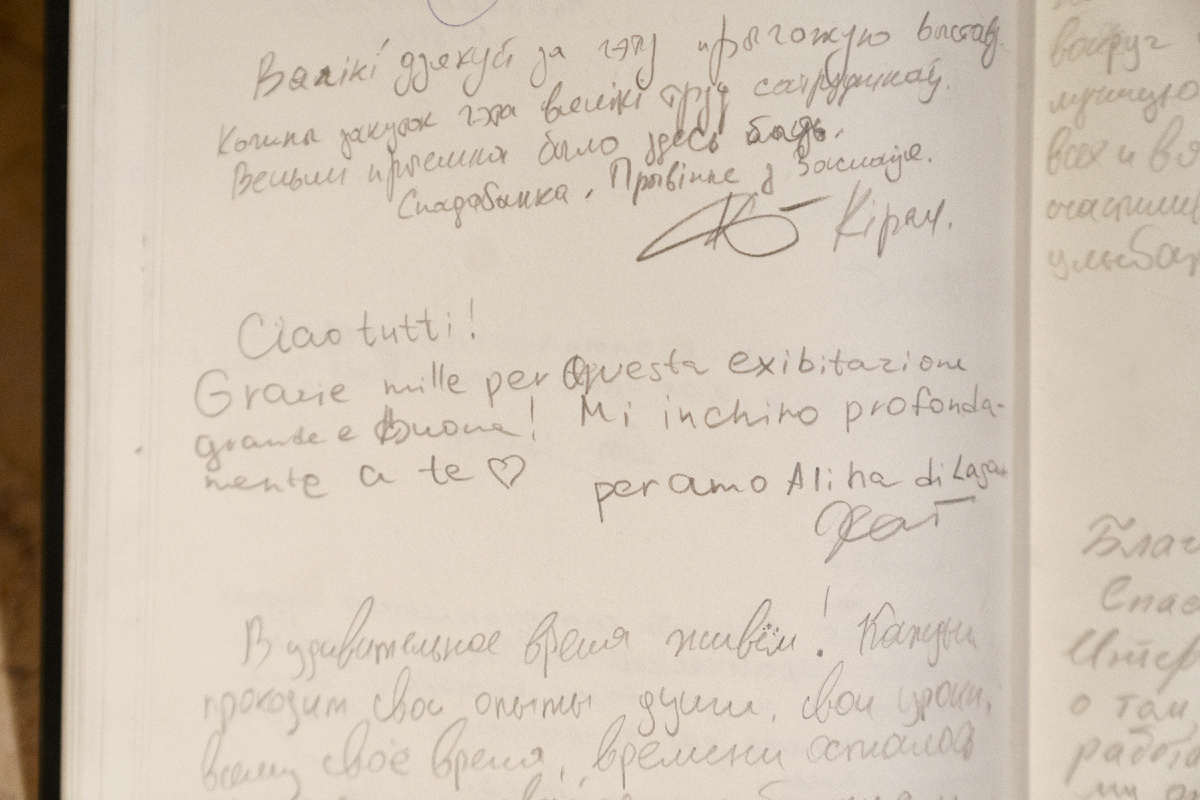 Вялікі дзякуй за гэту прыгожую выстав
Кожны закуток гэта вялікі труд сотруднікаў.
Вельми прыемна было здесь быць.
Спадабалка. Прывінне з Заслаўя.
Кірыл.
Ciao tutti!
Grazie mille per Questa exibitazione
grande e Buona! Mi inchino profonda-
mente a te ♡
per amo Alina di Laga
В удивительное время живём! Каждый
проходит свои опыты души, свои уроки,
всему своё время, времени осталось
вокруг
лучшую
всех и в я
счастлив
улыбат
Благ
Спас
Интер
о там
работа